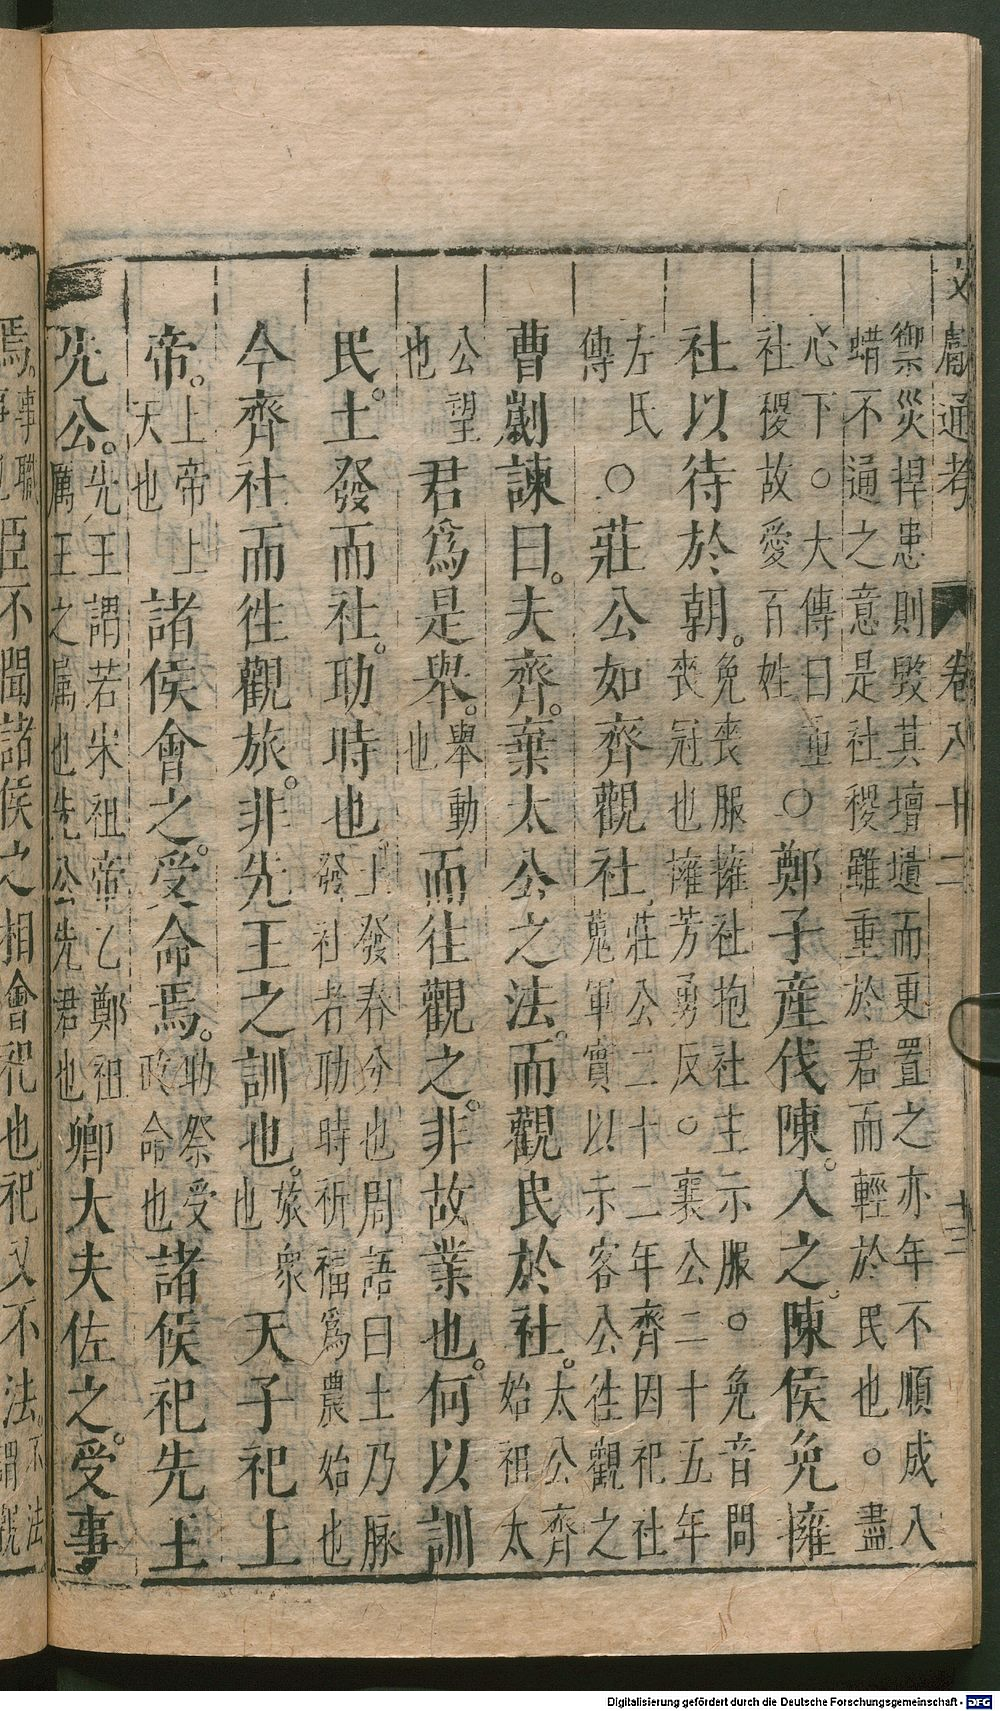 文獻通考 卷八十二 十三
禦災捍患則毀其壇壝而更置之亦年不順成八
蜡不通之意是社稷雖重於君而輕於民也。盡
心下。大傳曰重
社稷故愛百姓
〇鄭子產伐陳。入之。陳侯免擁
社以待於朝。
免喪服擁社抱社主示服。免音問
喪冠也擁芳勇反。襄公二十五年
左氏
傳
〇莊公如齊觀社。
莊公二十二年齊因祀社
蒐軍實以示客公徃觀之
曹劌諫曰。夫齊。棄太公之法。而觀民於社。
太公齊
始祖太
公望
也
君爲是舉。
舉動
也
而往觀之。非故業也。何以訓
民。土發而社。助時也。
土發春分也周語曰土乃脉
發社者助時祈福爲農始也
今齊社而徃觀旅。非先王之訓也。
旅衆
也
天子祀上
帝。
上帝上
天也
諸侯會之。受命焉。
助祭受
政命也
諸侯祀先王
先公。
先王謂若宋祖帝乙鄭祖
厲王之屬也先公先君也
卿大夫佐之。受事
焉。
事職
事也
臣不聞諸侯之相會祀也。祀又不法。
不法
謂觀
Digitalisierung gefördert durch die Deutsche Forschungsgemeinschaft - DFG